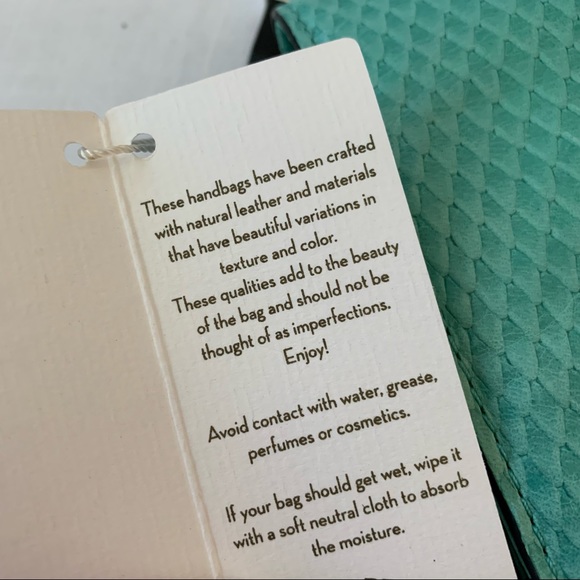 These handbags have been crafted
with natural leather and materials
that have beautiful variations in
texture and color.
These qualities add to the beauty
of the bag and should not be
thought of as imperfections.
Enjoy!
Avoid contact with water, grease,
perfumes or cosmetics.
If your bag should get wet, wipe it
with a soft neutral cloth to absorb
the moisture.